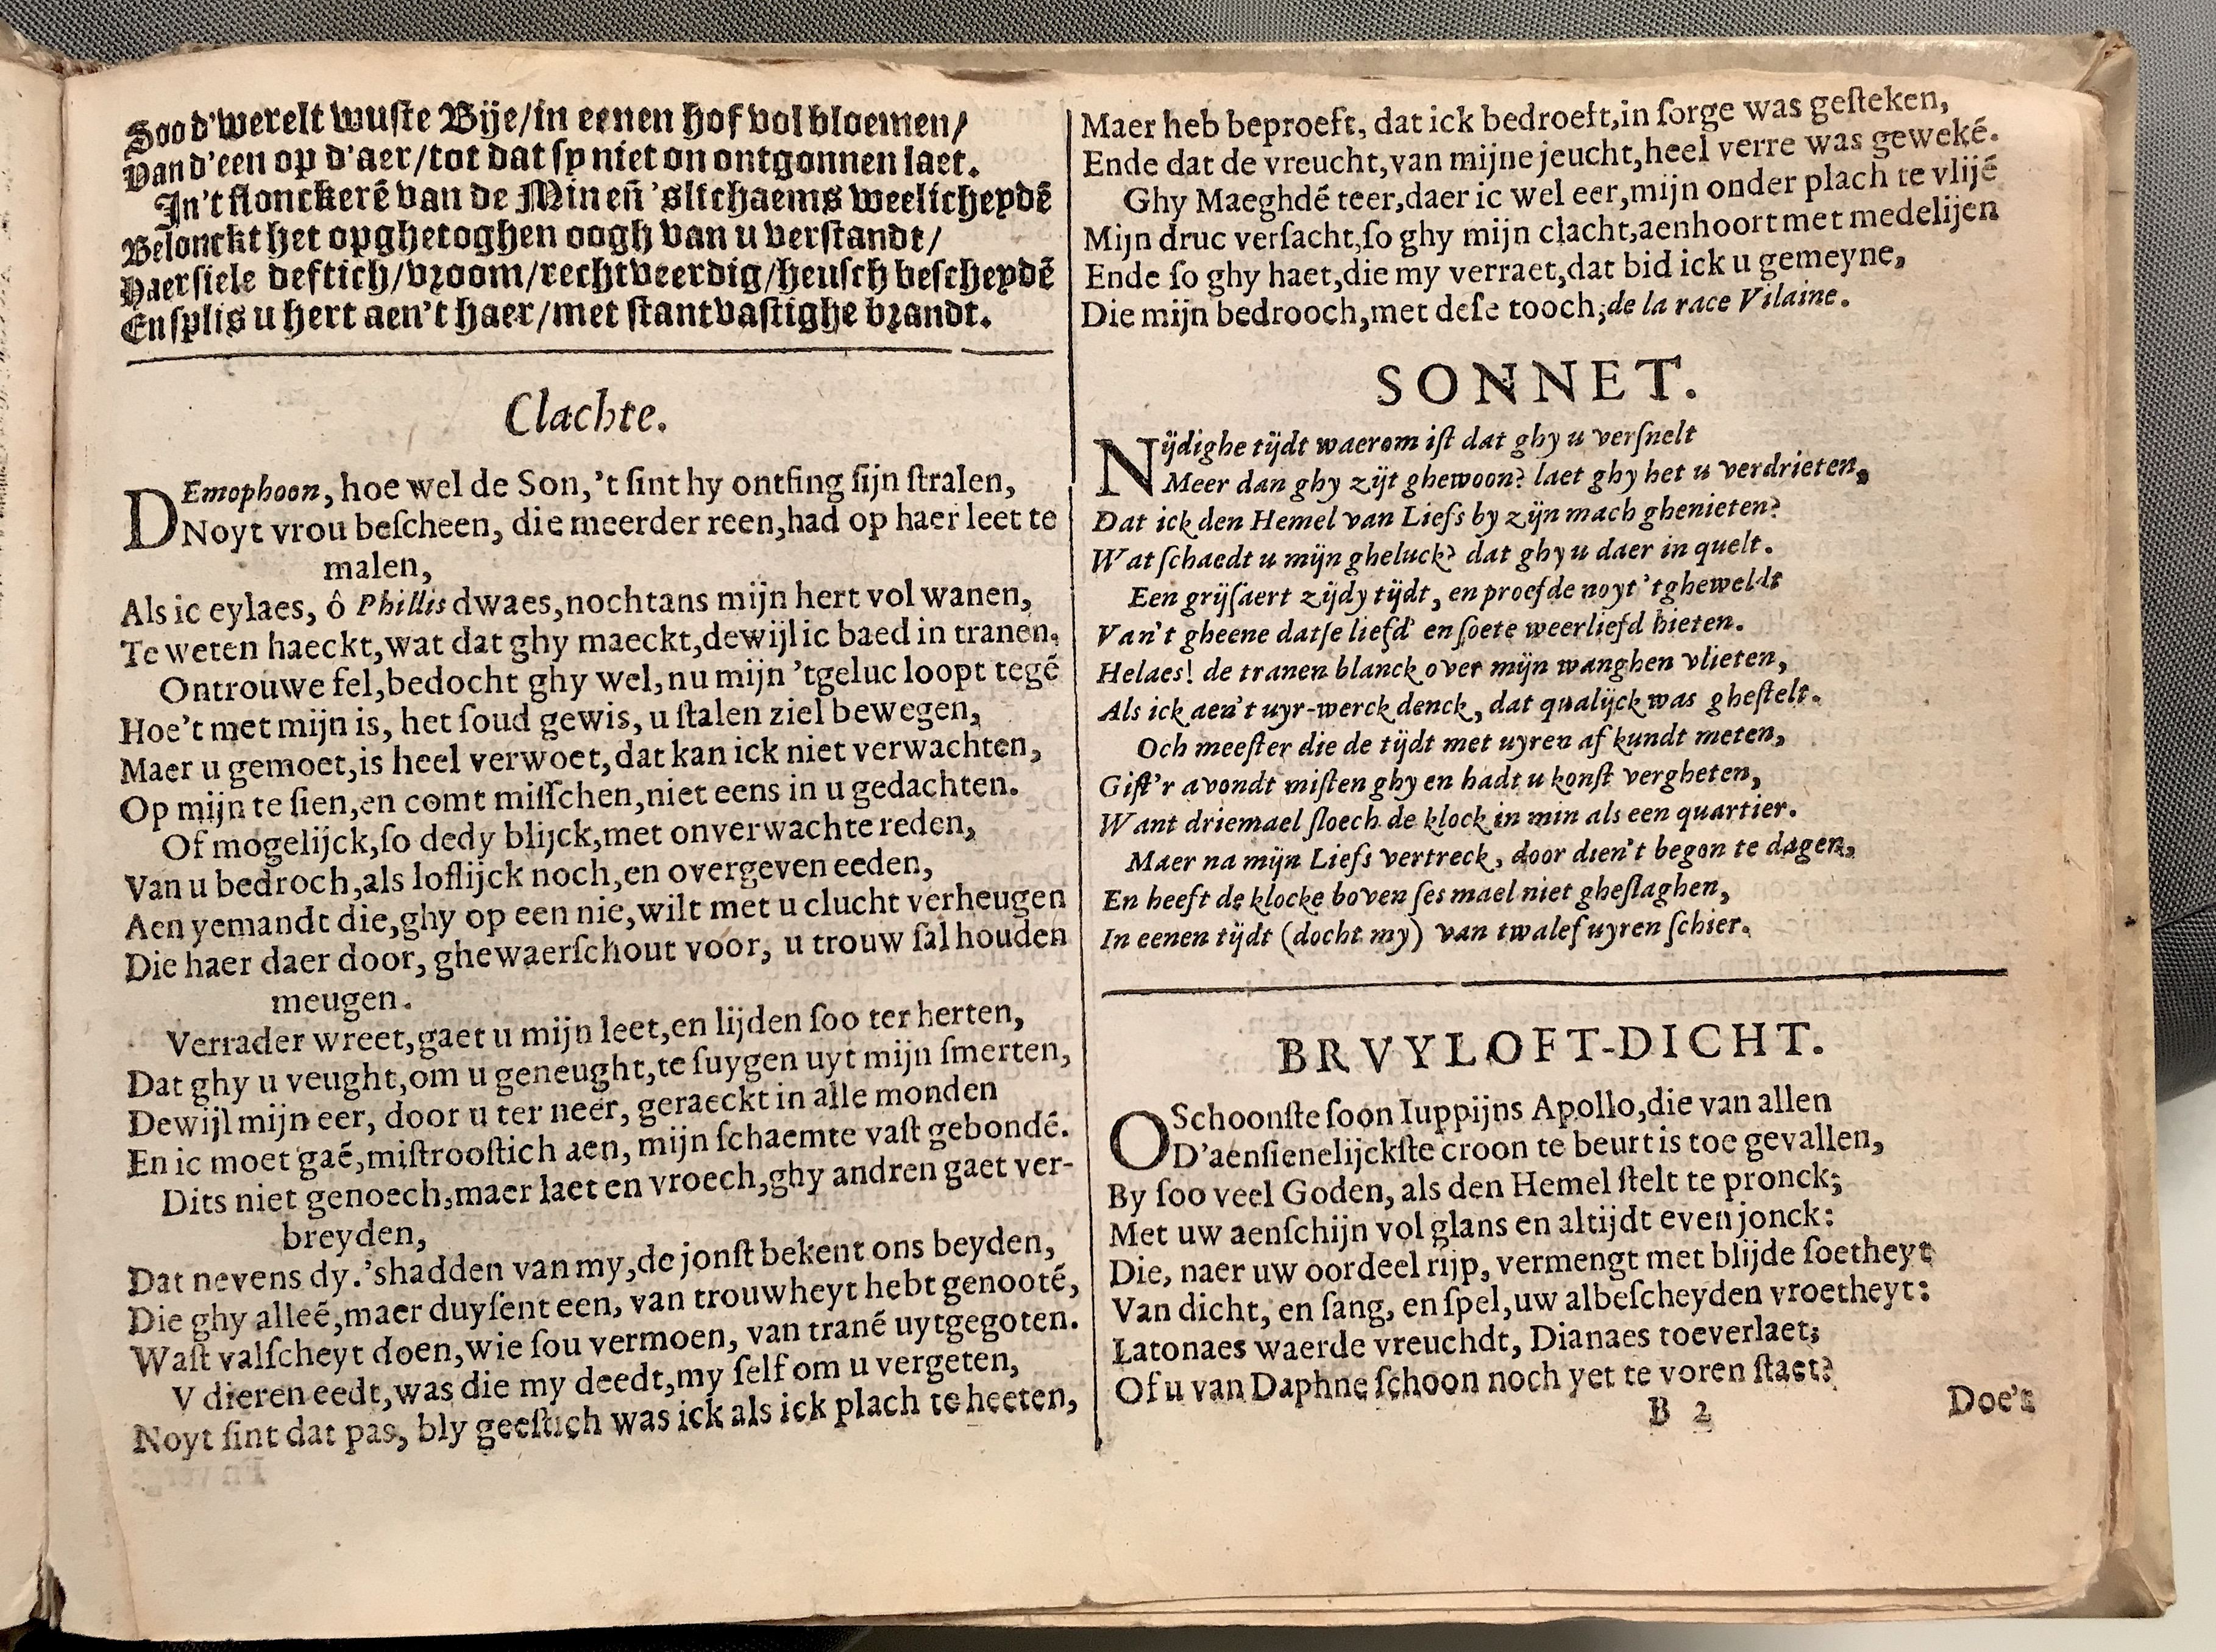 Soo d'werelt wuſte Bije/in eenen hof vol bloemen/
Van d'een op d'aer/tot dat ſy niet on ontgonnen laet.
In't flonckerẽ van de Min eñ 'slichaems weelicheydẽ
Belonckt het opghetoghen oogh van u verſtandt/
Haer ſiele deftich/vroom/rechtveerdig/heuſch beſcheydẽ
En ſplis u hert aen't haer/met ſtantvaſtighe brandt.
Clachte.
DEmophoon, hoe wel de Son,'t ſint hy ontfing ſijn ſtralen,
Noyt vrou beſcheen, die meerder reen,had op haer leet te
malen,
Als ic eylaes, ô Phillis dwaes,nochtans mijn hert vol wanen,
Te weten haeckt,wat dat ghy maeckt,dewijl ic baed in tranen.
Ontrouwe fel,bedocht ghy wel,nu mijn 'tgeluc loopt tegẽ
Hoe't met mijn is, het ſoud gewis, u ſtalen ziel bewegen,
Maer u gemoet,is heel verwoet,dat kan ick niet verwachten,
Op mijn te ſien,en comt miſſchen,niet eens in u gedachten.
Of mogelijck,ſo dedy blijck,met onverwachte reden,
Van u bedroch,als loflijck noch,en overgeven eeden,
Aen yemandt die,ghy op een nie,wilt met u clucht verheugen
Die haer daer door, ghewaerſchout voor, u trouw ſal houden
meugen.
Verrader wreet,gaet u mijn leet,en lijden ſoo ter herten,
Dat ghy u veught,om u geneught,te ſuygen uyt mijn ſmerten,
Dewijl mijn eer, door u ter neer, geraeckt in alle monden
En ic moet gaẽ,miſtrooſtich aen, mijn ſchaemte vaſt gebondẽ.
Dits niet genoech,maer laet en vroech,ghy andren gaet ver-
breyden,
Dat nevens dy.'shadden van my,de jonſt bekent ons beyden,
Die ghy alleẽ,maer duyſent een, van trouwheyt hebt genootẽ,
Waſt valſcheyt doen,wie ſou vermoen, van tranẽ uytgegoten.
V dieren eedt,was die my deedt,my ſelf om u vergeten,
Noyt ſint dat pas, bly geeſtich was ick als ick plach te heeten,
Maer heb beproeft, dat ick bedroeft,in ſorge was geſteken,
Ende dat de vreucht,van mijne jeucht,heel verre was gewekẽ.
Ghy Maeghdẽ teer,daer ic wel eer,mijn onder plach te vlijẽ
Mijn druc verſacht,ſo ghy mijn clacht,aenhoort met medelijen
Ende ſo ghy haet,die my verraet,dat bid ick u gemeyne,
Die mijn bedrooch,met deſe tooch;de la race Vilaine.
SONNET.
Nijdighe tijdt waerom iſt dat ghy u verſnelt
Meer dan ghy zijt ghewoon? laet ghy het u verdrieten,
Dat ick den Hemel van Liefs by zijn mach ghenieten?
Wat ſchaedt u mijn gheluck? dat ghy u daer in quelt.
Een grijſaert zijdy tijdt, en proefde noyt 'tgheweldt
Van't gheene datſe liefd' en ſoete weerliefd hieten.
Helaes! de tranen blanck over mijn wanghen vlieten,
Als ick aen't uyr-werck denck, dat qualijck was gheſtelt.
Och meeſter die de tijdt met uyren af kundt meten,
Giſt'r avondt miſten ghy en hadt u konſt vergheten,
Want driemael ſloech de klock in min als een quartier.
Maer na mijn Liefs vertreck, door dien't begon te dagen,
En heeft de klocke boven ſes mael niet gheſlaghen,
In eenen tijdt (docht my) van twalef uyren ſchier.
BRVYLOFT-DICHT.
O Schoonſte ſoon Iuppijns Apollo,die van allen
D'aenſienelijckſte croon te beurt is toe gevallen,
By ſoo veel Goden, als den Hemel ſtelt te pronck;
Met uw aenſchijn vol glans en altijdt even jonck:
Die, naer uw oordeel rijp, vermengt met blijde ſoetheyt
Van dicht, en ſang, en ſpel,uw albeſcheyden vroetheyt:
Latonaes waerde vreuchdt, Dianaes toeverlaet;
Of u van Daphne ſchoon noch yet te voren ſtaet?
B 2
Doe't